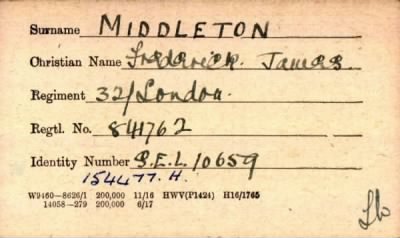 Surname MIDDLETON
Christian Name Frederick. James.
Regiment 32/London.
Regtl. No. 841762
Identity Number S.E.L. 10659
154477. H.
W9460—8626/1 200,000 11/16 HWV(P1424) H16/1765
14058—279 200,000 6/17